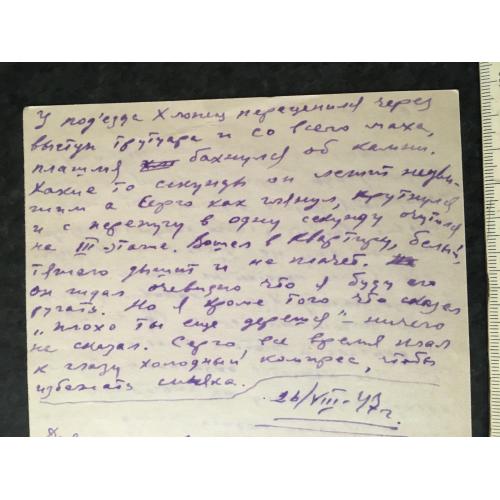 У под'езда Хлопец перецепился через
выступ тротуара и со всего маха,
плашмя бахнулся об камни.
Какие то секунды он лежит недви-
жим а Серго как глянул, крутнулся
и с перепугу в одну секунду очутился
на III-этаже. Вошел в квартиру, белый,
тяжело дышит и не плачет.
он ждал очевидно что я буду его
ругать. Но я кроме того что сказал
„плохо ты еще дерешся" – ничего
не сказал. Серго все время клал
к глазу холодный компрес, чтобы
избежать синяка.
26/VIII-47 г.